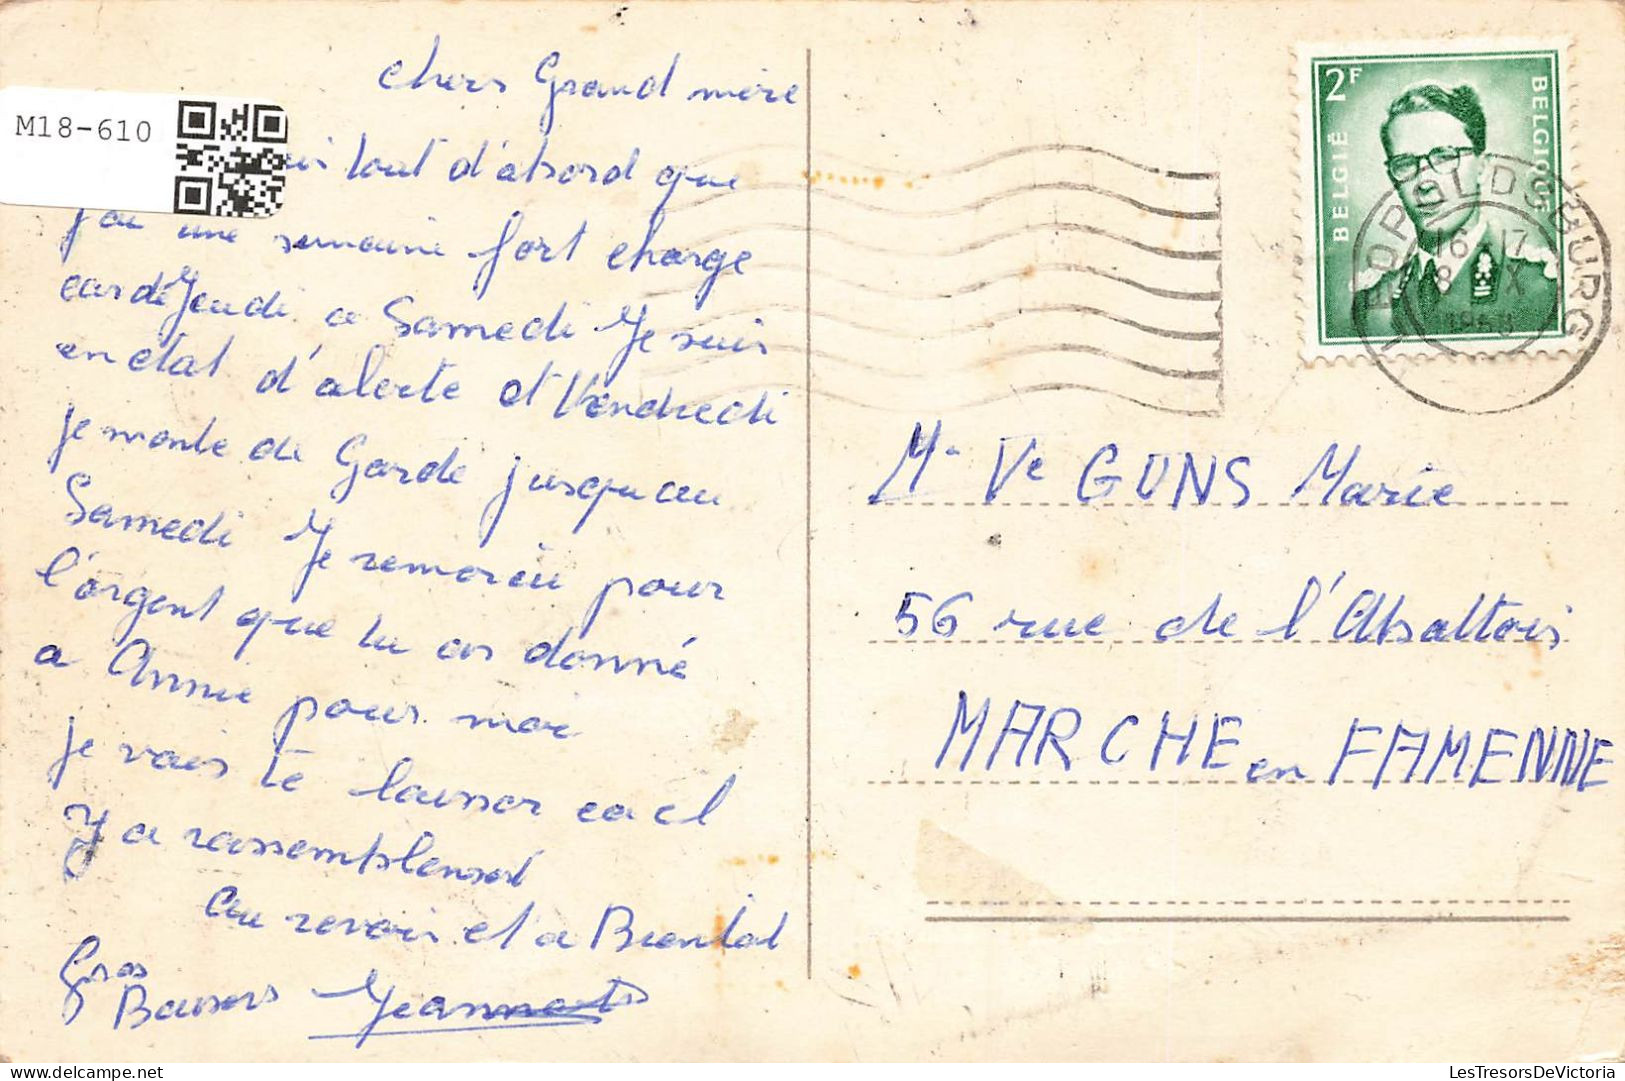 M18-610
chers Grand mère
tout d'abord que
j'ai une semaine fort charge
car de Jeudi a Samedi Je suis
en etat d'alerte et Vendredi
je monte de Garde jusqu au
Samedi Je remercie pour
l'argent que tu as donné
a Annie pour moi
je vais te laisser ca cl
Y a rassemblement
Au revoir et a Bientot
Gros
Baisers Jeannot
2F
BELGIË
BELGIQUE
LEOPOLDSBURG
16-17
8 X
M. Ve GONS Marie
56 rue de l'Abattois
MARCHE en FAMENNE
LesTresorsDeVictoria